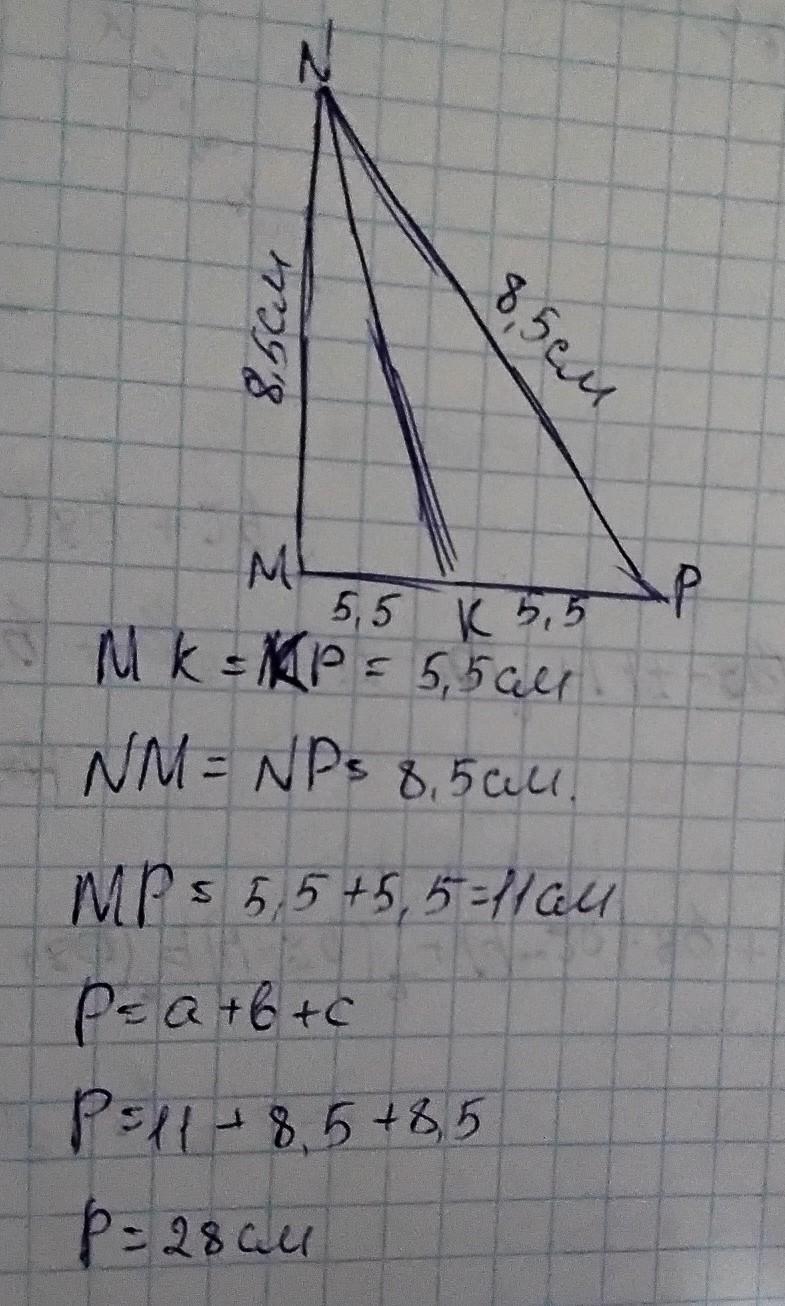 N
8,5см
8,5см
M
P
5,5
K
5,5
MK = KP = 5,5см
NM = NP = 8,5см.
MP = 5,5+5,5=11см
P=a+b+c
P=11+8,5+8,5
P=28см